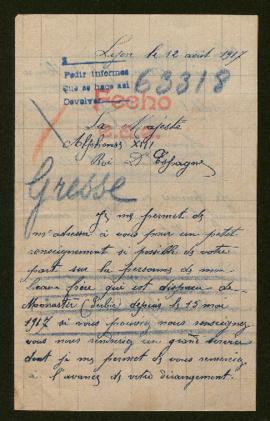 Lyon le 12 août 1917
Pedir informes
Que se haga así
Devolver
63318
Fecho
Sa Majesté
Alphonse XIII
Roi D'Espagne
Gresse
Je me permet de
m'adresser à vous pour un petit
renseignement si possible de votre
part sur la personne de mon
beau frère qui est disparu de
Monastir (Serbie) depuis le 15 mai
1917 si vous pouviez nous renseigner
vous nous rendriez un grand service
dont je me permet de vous remercier
à l'avance de votre dérangement.